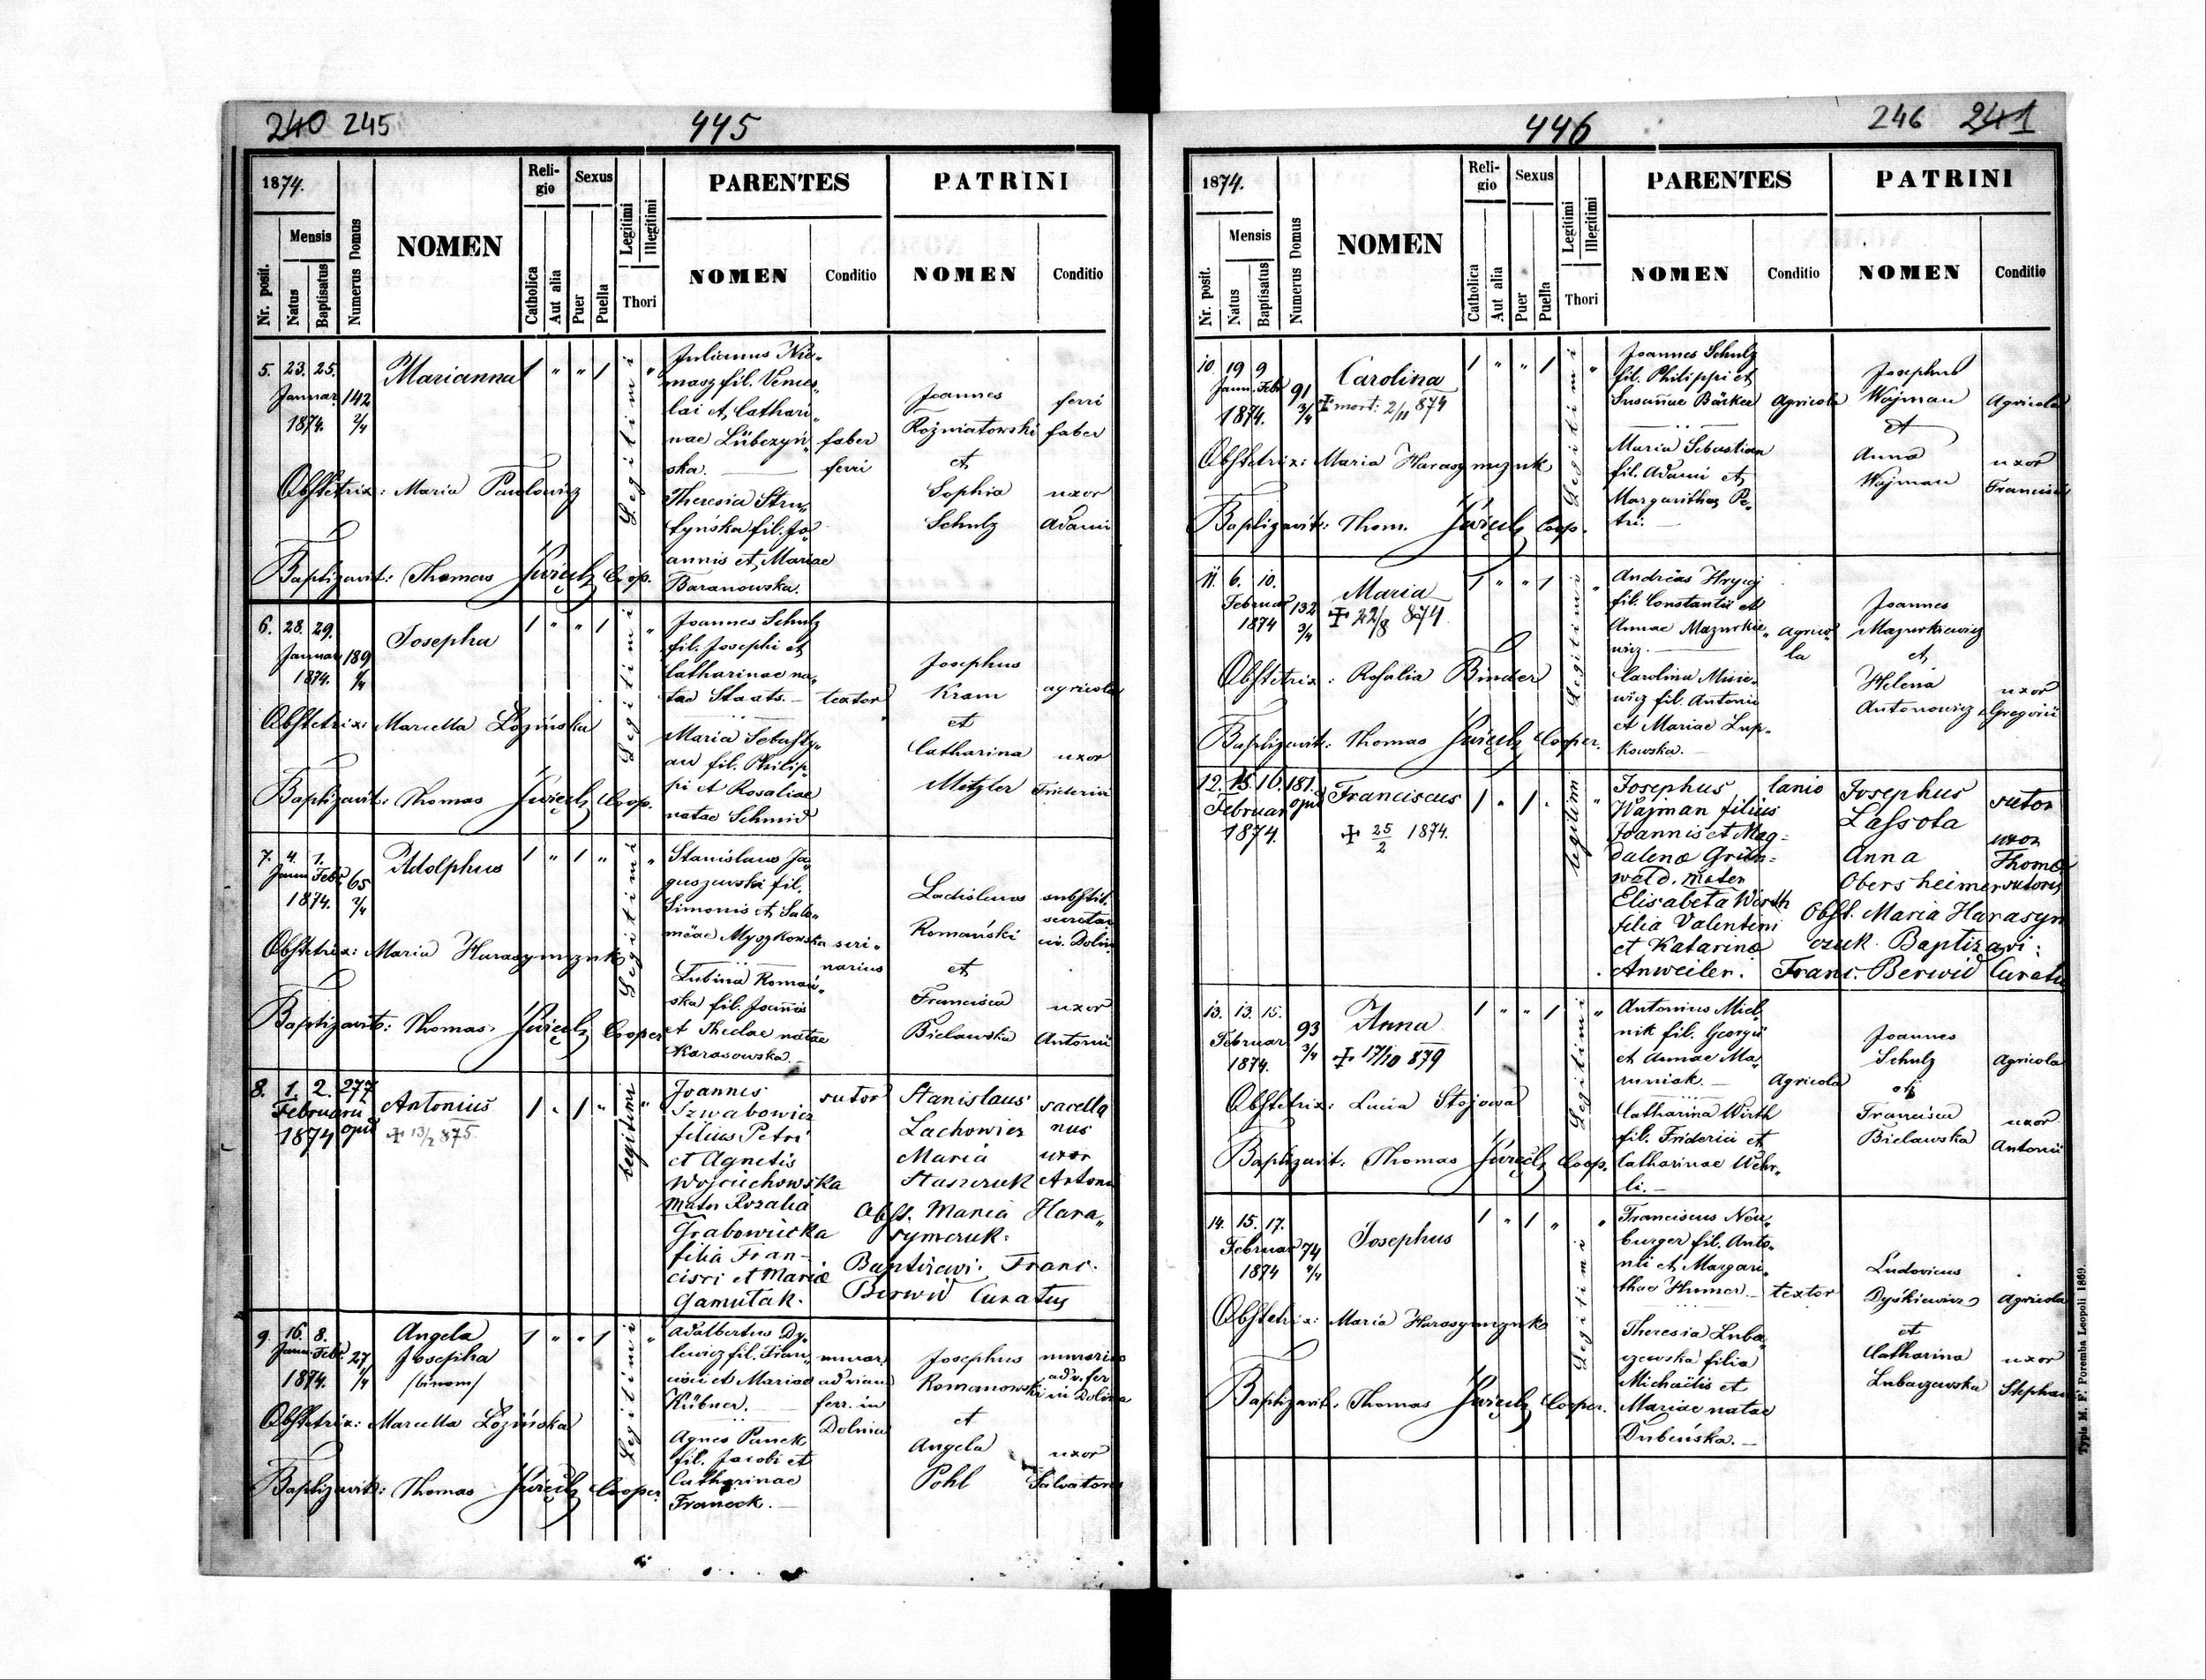 240 245
445
1874.
Nr. posit.
Mensis
Natus
Baptisatus
Numerus Domus
NOMEN
Reli-
gio
Catholica
Aut alia
Sexus
Puer
Puella
Legitimi
Illegitimi
Thori
PARENTES
NOMEN
Conditio
PATRINI
NOMEN
Conditio
5. 23. 25.
Januar. 142
1874. 2/4
Marianna
1 " " 1
Legitimi "
Julianus
masz fil. Vences„
lai et Cathari„
nae Lübczyń„
ska.
Theresia Stru„
tyńska fil. Jo„
annis et Mariae
Baranowska.
faber
ferri
Joannes
Rożniatowski
et
Sophia
Schulz
ferri
faber
uxor
Adami
Obstetrix: Maria Pawlowicz
Baptizavit: Thomas Święch Coop.
6. 28. 29.
Januar 189
1874. 4/4
Josepha
1 " " 1
Legitimi "
Joannes Schulz
fil. Josephi et
Catharinae na„
tae Staats.
Maria Sebasty„
an fil. Philip„
pi et Rosaliae
natae Schmid
textor
Josephus
Kram
et
Catharina
Metzler
agricola
uxor
Friderici
Obstetrix: Marcella Łozińska
Baptizavit: Thomas Święch Coop.
7. 4. 1.
Janu. Febr. 65
1874. 2/4
Adolphus
1 " 1 "
Legitimi "
Stanislaus Ja„
guszewski fil.
Simonis et Salo„
meae Myszkowska
Lubina Romań„
ska fil. Joannis
et Theclae natae
Karasowska.
scri„
narius
Ladislaus
Romański
et
Francisca
Bielawska
substit.
secretar
in Dolin
uxor
Antonii
Obstetrix: Maria Harasymczuk
Baptizavit: Thomas Święch Cooper
8. 1. 2. 277
Februarii opid
1874
Antonius
✝ 13/2 875.
1 " 1 "
legitimi "
Joannes
Szwabowicz
filius Petri
et Agnetis
Wojciechowska
Mater Rozalia
Grabowiecka
filia Fran-
cisci et Mariae
Gamutak.
sutor
Stanislaus
Lachowicz
Maria
Staszczuk
sacella
nus
uxor
Antoni
Obst. Maria Hara„
symczuk.
Baptizavi. Franc.
Berwid Curatus
9. 16. 8.
Janu. Febr. 27
1874. 1/4
Angela
Josepha
/binom/
1 " " 1
Legitimi "
Adalbertus Dy„
lewicz fil. Fran„
cisci et Mariae
Kübner.
Agnes Panek
fil. Jacobi et
Catharinae
Franeck.
murar.
ad viam
ferr. in
Dolina
Josephus
Romanowski
et
Angela
Pohl
murarius
ad v. fer
in Dolina
uxor
Salvatoris
Obstetrix: Marcella Łozińska
Baptizavit: Thomas Święch Cooper
446
246 241
1874.
Nr. posit.
Mensis
Natus
Baptisatus
Numerus Domus
NOMEN
Reli-
gio
Catholica
Aut alia
Sexus
Puer
Puella
Legitimi
Illegitimi
Thori
PARENTES
NOMEN
Conditio
PATRINI
NOMEN
Conditio
10. 19 9
Janu. Febr 91
1874. 3/4
Carolina
✝ mort: 2/11 874
1 " " 1
Legitimi "
Joannes Schulz
fil. Philippi et
Susannae Bäcker
Maria Sebastian
fil. Adami et
Margarithae Pe„
tri.
Agricola
Josephus
Wajman
et
Anna
Wajman
Agricola
uxor
Francisci
Obstetrix: Maria Harasymczuk
Baptizavit: Thom. Święch Coop.
11. 6. 10.
Februar 132
1874 3/4
Maria
✝ 22/8 874
1 " " 1
Legitimi "
Andreas Hrycaj
fil. Constantii et
Annae Mazurkie„
wicz.
Carolina Misie„
wicz fil. Antonii
et Mariae Lup„
kowska.
Agrico„
la
Joannes
Mazurkiewicz
et
Helena
Antonowicz
uxor
Gregorii
Obstetrix: Rosalia Binder
Baptizavit: Thomas Święch Cooper.
12. 15. 16. 181.
Februar opid
1874.
Franciscus
✝ 25/2 1874.
1 " 1 "
legitimi "
Josephus
Wajman filius
Joannis et Mag=
dalenae Grün=
wald. Mater
Elisabeta Wirth
filia Valentini
et Katarinae
Anweiler.
lanio
Josephus
Lassota
Anna
Obersheimer
sutor
uxor
Thomae
sutoris
Obst. Maria Harasym
czuk. Baptizavi:
Franc. Berwid Curatus
13. 13. 15.
Februar 93
1874. 3/4
Anna
✝ 17/10 879
1 " " 1
Legitimi "
Antonius Miel„
nik fil. Georgii
et Annae Ma„
runiak.
Catharina Wirth
fil. Friderici et
Catharinae Wehr„
li.
Agricola
Joannes
Schulz
et
Francisca
Bielawska
Agricola
uxor
Antonii
Obstetrix: Lucia Stojowa
Baptizavit. Thomas Święch Coop.
14. 15. 17.
Februar 74
1874 4/4
Josephus
1 " 1 "
Legitimi "
Franciscus Neu„
burger fil. Anto„
nii et Margari„
thae Humer.
Theresia Luba„
czewska filia
Michaëlis et
Mariae natae
Dubeńska.
textor
Ludovicus
Dyskiewicz
et
Catharina
Lubaczewska
Agricola
uxor
Stephani
Obstetrix: Maria Harasymczuk
Baptizavit. Thomas Święch Cooper.
Typis M. F. Poremba Leopoli 1869.